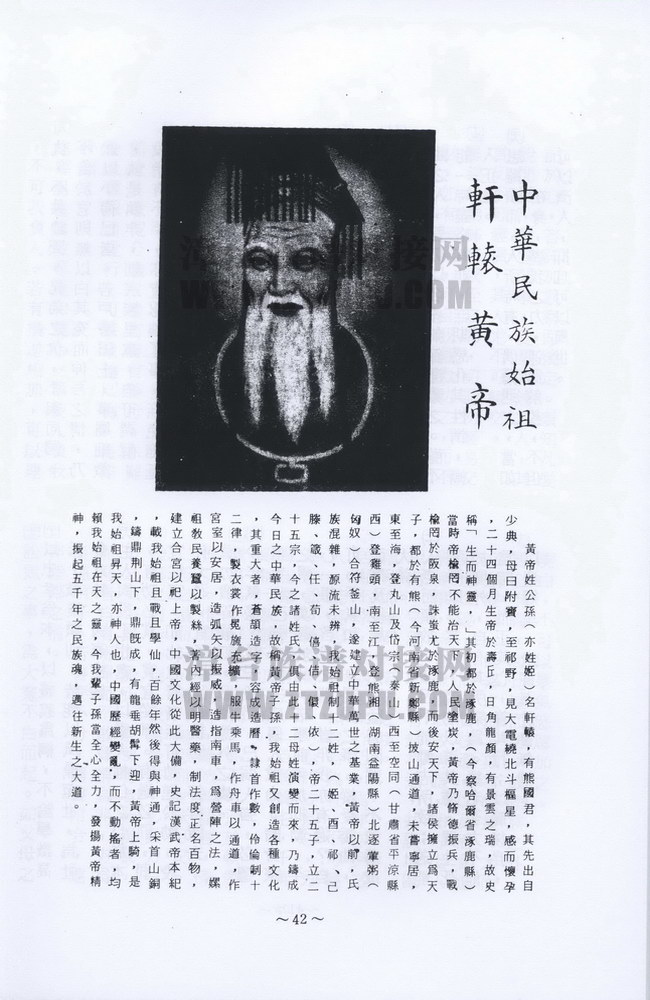 中華民族始祖
軒轅黃帝
黃帝姓公孫（亦姓姬）名軒轅，有熊國君，其先出自
少典，母曰附寶，至祁野，見大電繞北斗樞星，感而懷孕
，二十四個月生帝於壽丘，日角龍顏，有景雲之瑞，故史
稱「生而神靈，」其初都於涿鹿，（今察哈爾省涿鹿縣）
當時帝榆罔不能治天下，人民塗炭，黃帝乃脩德振兵，戰
榆罔於阪泉，誅蚩尤於涿鹿，而後安天下，諸侯擁立為天
子，都於有熊（今河南省新鄭縣）披山通道，未嘗寧居，
東至海，登丸山及岱宗（泰山）西至空同（甘肅省平涼縣
西）登雞頭，南至江，登熊湘（湖南益陽縣）北逐葷粥（
匈奴）合符釜山，遂建立中華萬世之基業，黃帝以前，氏
族混雜，源流未辨，我始祖制十二姓，（姬、酉、祁、己
滕、箴、任、荀、僖、佶、儇、依），帝二十五子，立二
十五宗，今之諸姓氏，俱由此十二母姓演變而來，乃鑄成
今日之中華民族，故稱黃帝子孫，我始祖又創造各種文化
，其重大者，蒼頡造字，容成造曆，隸首作數，伶倫制十
二律，製衣裳作冕旒充纊，服牛乘馬，作舟車以通道，作
宮室以安居，造弧矢以振威，造指南車，爲營陣之法，嫘
祖敎民養蠶以製絲，內經以明醫藥，制法度正名百物，
建立合宮以祀上帝，中國文化從此大備，史記漢武帝本紀
，載我始祖且戰且學仙，百餘年然後得與神通，采首山銅
，鑄鼎荆山下，鼎旣成，有龍垂胡髯下迎，黃帝上騎，是
我始祖昇天，亦神人也，中國歷經變亂，而不動搖者，均
賴我始祖在天之靈，今我輩子孫當全心全力，發揚黃帝精
神，振起五千年之民族魂，邁往新生之大道。
～42～
漳台族谱对接网